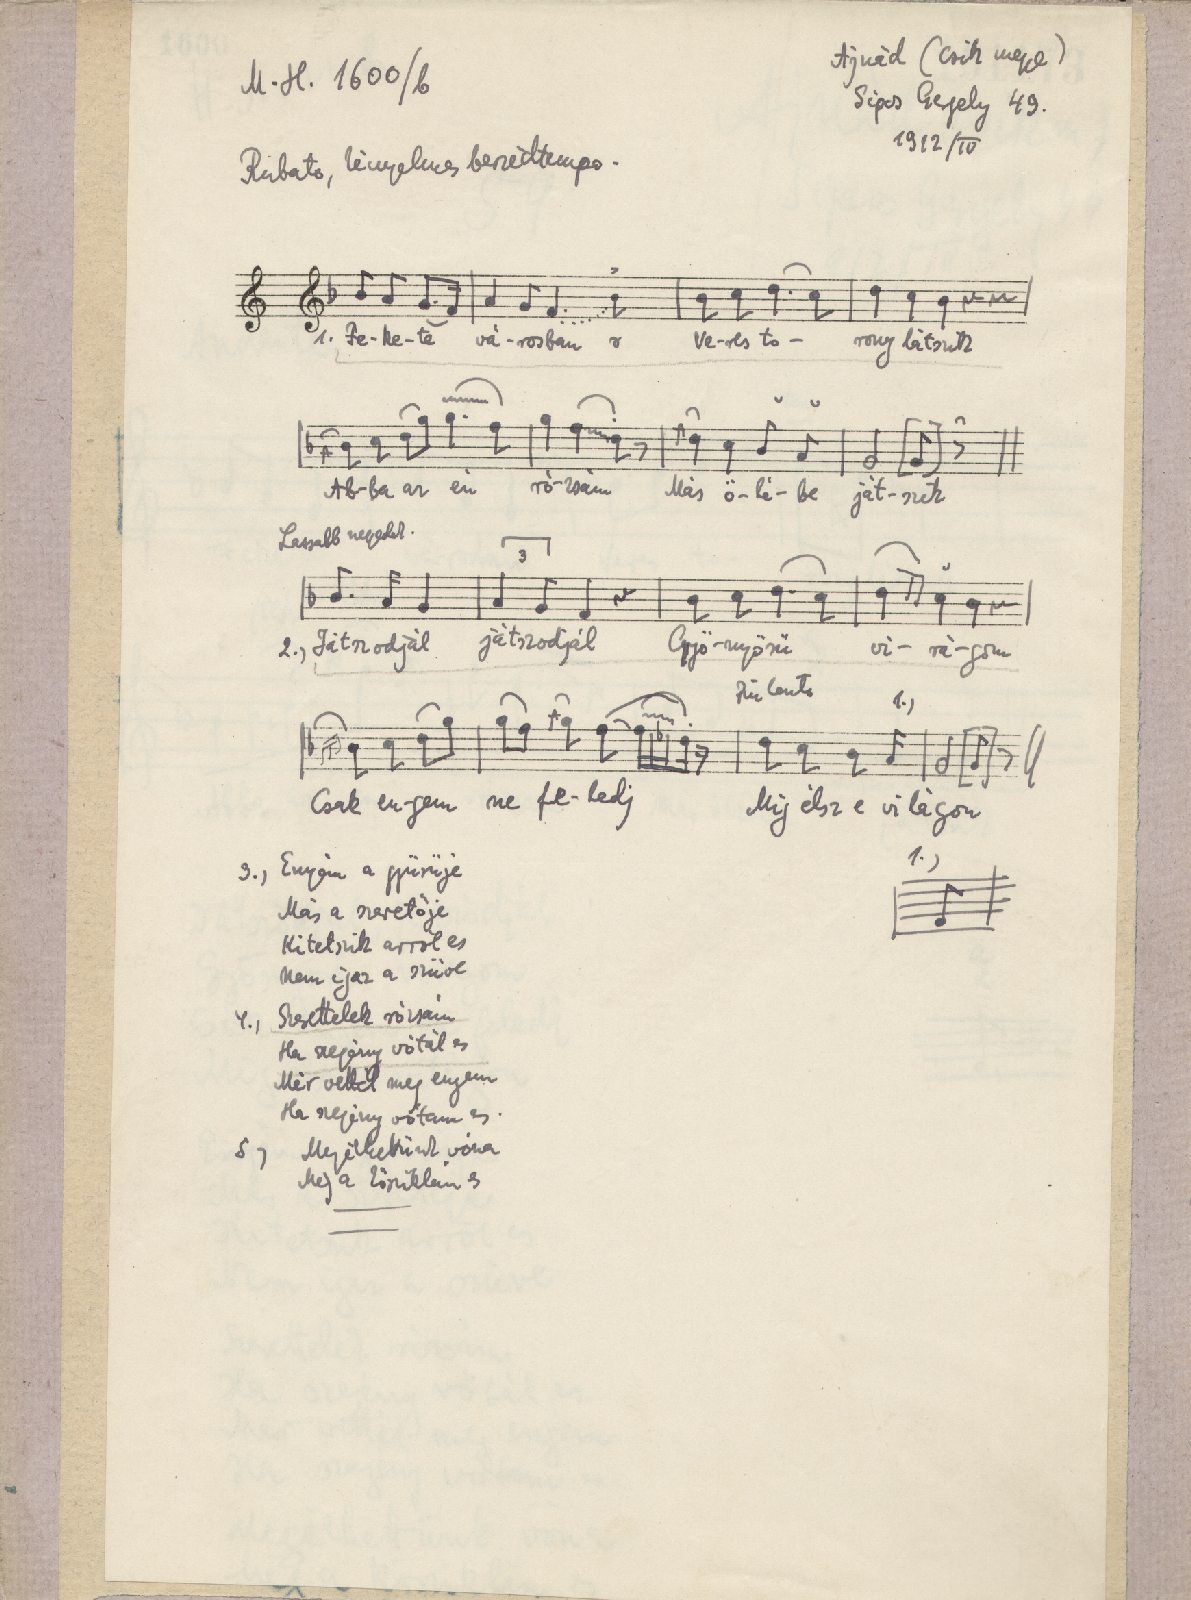 M.H. 1600/b
Ajnád (Csik megye)
Sipos Gergely 49.
1912/IV
Rubato, kényelmes beszédtempo.
1. Fe-ke-te vá-rosban Ve-res to- rony látszik
Ab-ba az én ró-zsám Más ö-lé-be ját-szik
Lassabb
3
2., Játszodjál játszodjál Gyö-nyörü vi-rá-gom
lento
1.,
Csak en-gem ne fe-ledj Mig élsz e világon
1.,
3., Enyém a gyürüje
Más a szeretője
Kitetszik arról es
Nem igaz a szüve
4., Szerettelek rózsám
Ha szegény vótál es
Mér vettél meg engem
Ha szegény vótam es.
5., Megélhettünk vóna
Még a kősziklán es